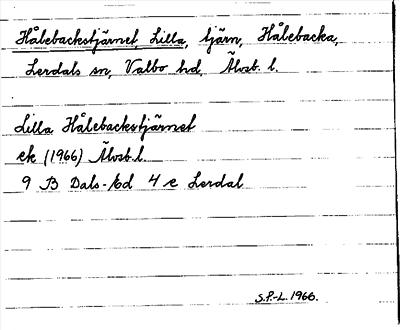 Hålebackstjärnet, Lilla, tjärn, Hålebacka,
Lerdals sn, Valbo hd, Älvsb. l.
Lilla Hålebackstjärnet
ek (1966) Älvsb. l.
9 B Dals-Ed 4 e Lerdal
S.F.-L. 1966.